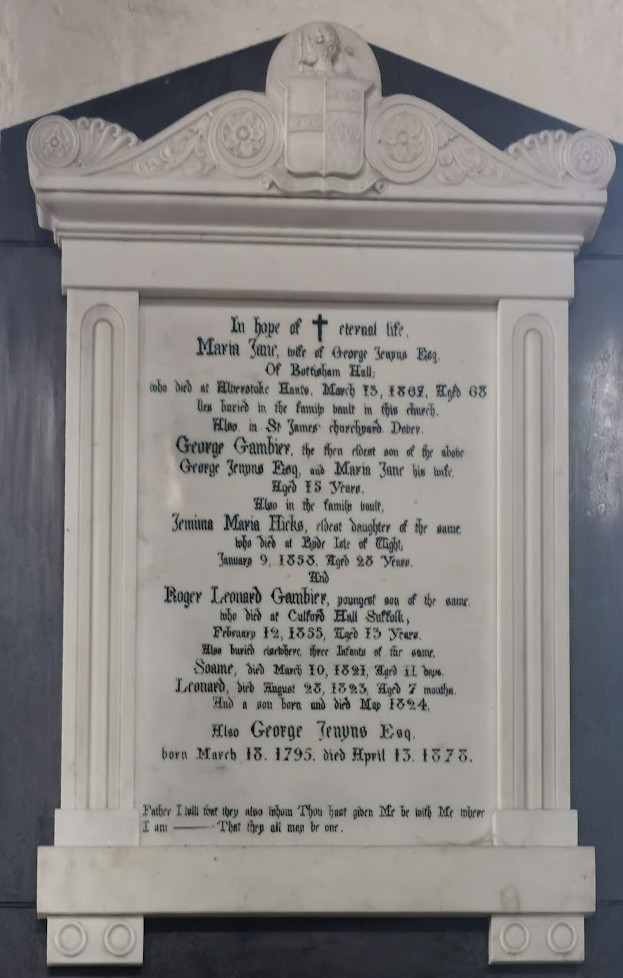 In hope of † eternal life.
Maria Jane, wife of George Jenyns Esq.
Of Bottisham Hall;
who died at Alverstoke Hants. March 13, Aged 68
lies buried in the family vault in this church.
Also in St James' churchyard Dover.
George Gambier, the then eldest son of the above
George Jenyns Esq, and Maria Jane his wife.
Aged 15 Years.
Also in the family vault,
Jemima Maria Hicks, eldest daughter of the same.
who died at Ryde Isle of Wight,
January 9, Aged 28 Years.
And
Roger Leonard Gambier, youngest son of the same.
who died at Culford Hall Suffolk,
February 12, 1855, Aged 13 Years.
Also buried elsewhere, three Infants of the same.
Soame, died March 10, 1821, Aged 11 days.
Leonard, died August 28, 1823, Aged 7 months.
And a son born and died May 1824.
Also George Jenyns Esq.
born March 18. 1795. died April 13. 1878.
Father I will that they also whom Thou hast given Me be with Me where
I am — That they all may be one.